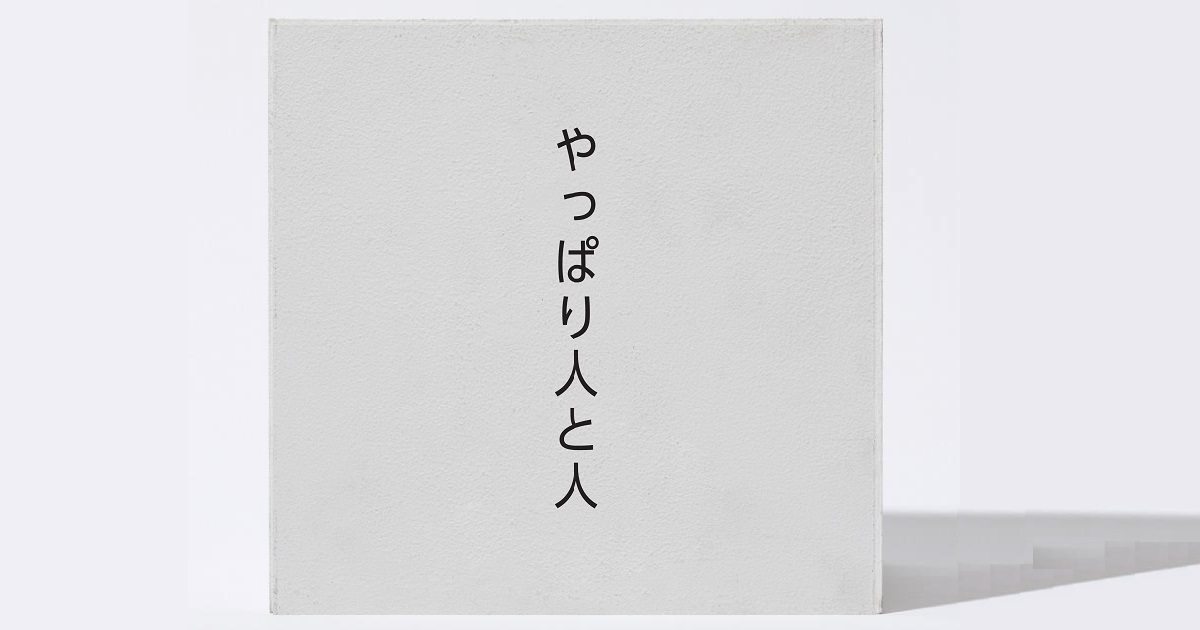 やっぱり人と人